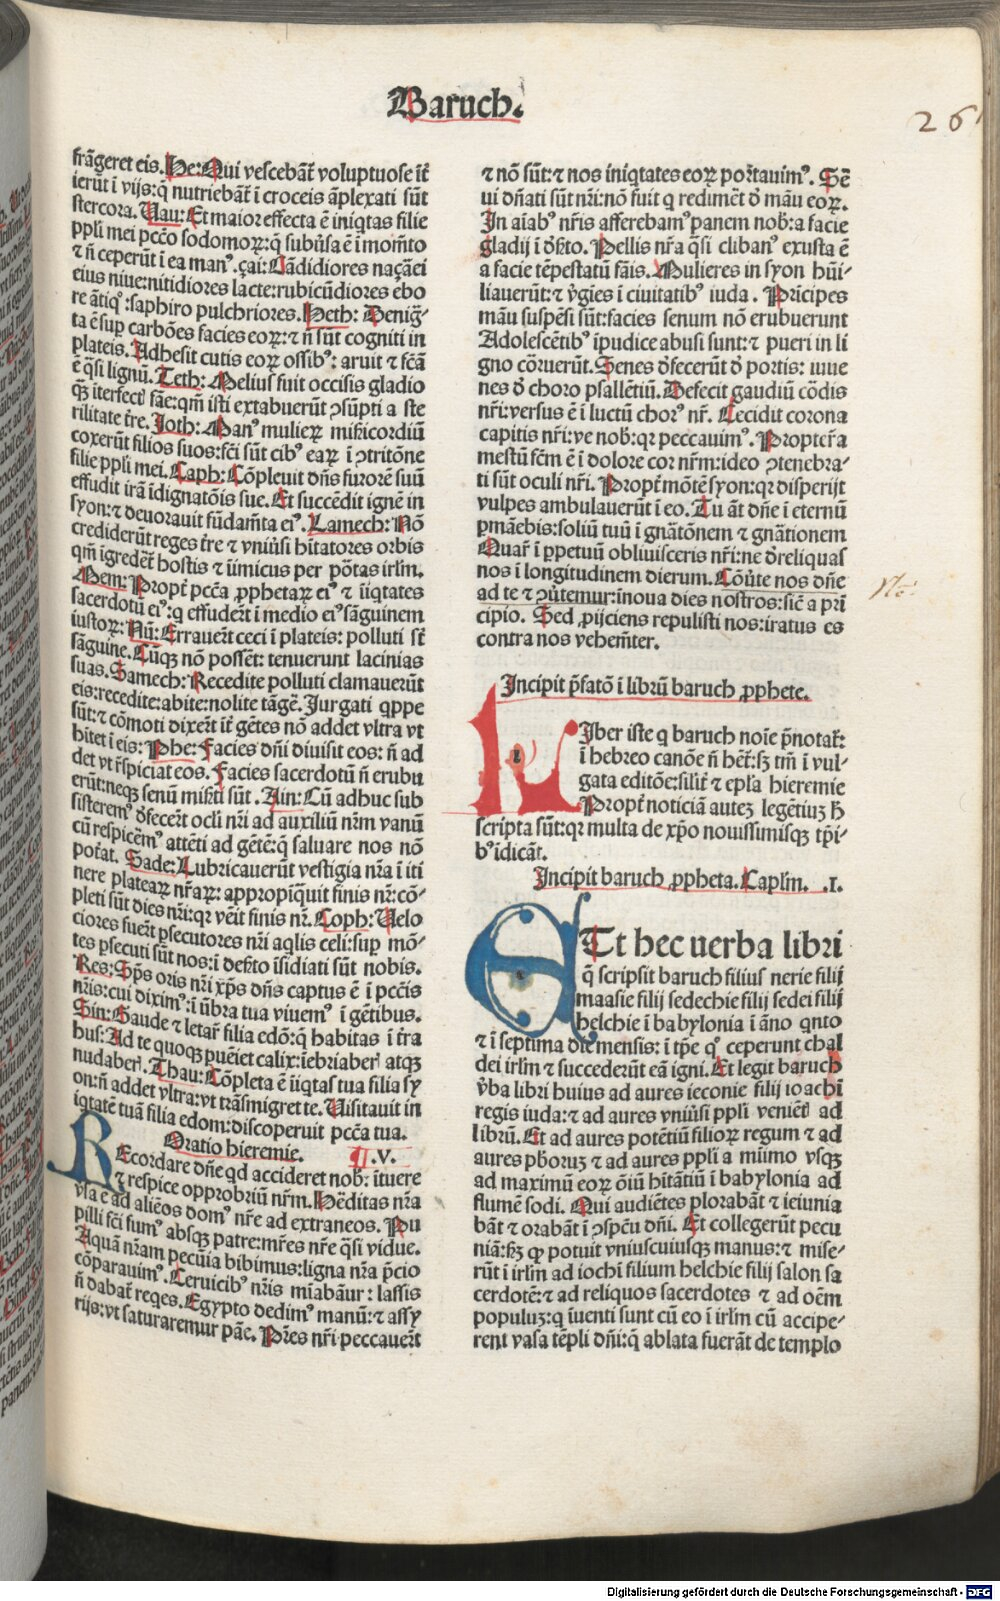 Baruch.
261
frãgeret eis. He: Qui vescebãt̃ voluptuose ĩt̃
ierũt ĩ vijs: q̃ nutriebãt̃ ĩ croceis ãplexati sũt
stercora. Uau: Et maior effecta ẽ iniq̃tas filie
ppl̃i mei pcc̃o sodomoꝝ: q̃ subũsa ẽ ĩ momñto
⁊ ñ ceperũt ĩ ea manꝰ. çai: Cãdidiores naçãei
eius niue: nitidiores lacte: rubicũdiores ebo
re ãtiqꝰ: saphiro pulchriores. Heth: Denig̃-
ta ẽ sup̱ carbões facies eoꝝ: ⁊ ñ sũt cogniti in
plateis. Adhesit cutis eoꝝ ossibꝰ: aruit ⁊ fc̃ã
ẽ q̃si lignũ. Teth: Melius fuit occisis gladio
q̃ꝫ iterfecti fãe: qm̃ isti extabuerũt ꝯsũpti a ste
rilitate tr̃e. Joth: Manꝰ mulieꝝ mis̃icordiũ
coxerũt filios suos: fc̃i sũt cibꝰ eaꝝ ĩ ꝯtritõne
filie ppl̃i mei. Caph: Cõpleuit dñs furorẽ suũ
effudit irã ĩdignatõis sue. Et succẽdit ignẽ in
syon: ⁊ deuorauit fũdam̃ta eiꝰ. Lamech: Nõ
crediderũt reges tr̃e ⁊ vniũsi hĩtatores orbis
qm̃ igredẽt̃ hostis ⁊ iĩmicus per põtas irl̃m.
Mem: Propt̃ pcc̃a ꝓphetaꝝ eiꝰ ⁊ iĩq̃tates
sacerdotũ eiꝰ: q̃ effuderĩt ĩ medio eiꝰ sãguinem
iustoꝝ: Nũ: Errauer̃t ceci ĩ plateis: polluti st̃
sãguine. Cũqꝫ nõ possẽt: tenuerunt lacinias
suas. Samech: Recedite polluti clamauerũt
eis: recedite: abite: nolite tãg̃e. Jurgati q̃ppe
sũt: ⁊ cõmoti dixer̃t ĩt̃ gẽtes nõ addet vltra vt
hitet ĩ eis: Phe: Facies dñi diuisit eos: ñ ad
det vt r̃spiciat eos. Facies sacerdotũ ñ erubu
erũt: neqꝫ senũ mis̃ti sũt. Ain: Cũ adhuc sub
sisteremꝰ d̃fecer̃t ocl̃i nr̃i ad auxiliũ nr̃m vanũ
cũ respicẽmꝰ attẽti ad gẽtẽ: q̃ saluare nos nõ
pot̃at. Sade: Lubricauerũt vestigia nr̃a ĩ iti
nere plateaꝝ nr̃aꝝ: appropĩq̃uit finis nr̃: cõ-
pleti sũt dies nr̃i: qꝛ vẽit finis nr̃. Coph: Velo
ciores fuer̃t p̱secutores nr̃i aq̃lis celi: sup̱ mõ-
tes p̱secuti sũt nos: ĩ des̃to ĩsidiati sũt nobis.
Res: Sp̃s oris nr̃i xp̃s dñs captus ẽ ĩ pcc̃is
nr̃is: cui diximꝰ: ĩ ũbra tua viuemꝰ ĩ gẽtibus.
Sin: Gaude ⁊ letar̃ filia edõ: q̃ habitas ĩ tr̃a
hus: Ad te quoqꝫ pueĩet calix: iebriaberꝭ atqꝫ
nudaberꝭ. Thau: Cõpleta ẽ iĩq̃tas tua filia sy
on: ñ addet vltra: vt trãsmigret te. Uisitauit in
iq̃tatẽ tuã filia edom: discoperuit pcc̃a tua.
Oratio hieremie. ¶ .V.
REcordare dñe qd accideret nob̃: ituere
⁊ respice opprobriũ nr̃m. Hẽditas nr̃a
ṽsa ẽ ad aliẽos domꝰ nr̃e ad extraneos. Pu
pilli fc̃i sumꝰ absqꝫ patre: mr̃es nr̃e q̃si vidue.
Aquã nr̃am pecũia bibimus: ligna nr̃a p̃cio
cõparauimꝰ. Ceruicibꝰ nr̃is mĩabãur: lassis
ñ dabat̃ req̃es. Egypto dedimꝰ manũ: ⁊ assy
rijs: vt saturaremur pãe. Pr̃es nr̃i peccauer̃t
⁊ nõ sũt: ⁊ nos iniq̃tates eoꝝ portauimꝰ. Sẽ
ui dñati sũt nr̃i: nõ fuit q̃ redimẽt d̃ mãu eoꝝ.
In aĩabꝰ nr̃is afferebamꝰ panem nob̃: a facie
gladij ĩ d̃sẽto. Pellis nr̃a q̃si clibanꝰ exusta ẽ
a facie tẽpestatũ fãis. Mulieres in syon hũi-
liauerũt: ⁊ ṽgies ĩ ciuitatibꝰ iuda. Prĩcipes
mãu suspẽsi sũt: facies senum nõ erubuerunt
Adolescẽtibꝰ ĩpudice abusi sunt: ⁊ pueri in li
gno cõruerũt. Senes d̃fecerũt d̃ portis: iuue
nes d̃ choro psallẽtiũ. Defecit gaudiũ cõdis
nr̃i: versus ẽ ĩ luctũ chorꝰ nr̃. Cecidit corona
capitis nr̃i: ve nob̃: qꝛ peccauimꝰ. Propter̃a
mestũ fc̃m ẽ ĩ dolore cor nr̃m: ideo ꝯtenebra-
ti sũt oculi nr̃i. Propt̃ mõtẽ syon: qꝛ disperijt
vulpes ambulauerũt ĩ eo. Tu ãt dñe ĩ eternũ
p̱mãebis: soliũ tuũ ĩ gñatõnem ⁊ gñationem
Quar̃ ĩ p̱petuũ obliuisceris nr̃i: ne d̃reliquas
nos ĩ longitudinem dierum. Cõũte nos dñe
ad te ⁊ ꝯũtemur: ĩnoua dies nostros: sic̃ a pri
cipio. Sed ꝓijciens repulisti nos: iratus es
contra nos vehem̃ter.
Nõ:
Incipit p̃fatõ ĩ librũ baruch ꝓphete.
LIber iste q̃ baruch noĩe p̃notat̃:
ĩ hebreo canõe ñ hẽt̃: sꝫ tm̃ ĩ vul-
gata editõe: sil̃it̃ ⁊ epl̃a hieremie
Propt̃ noticiã auteꝫ legẽtiuꝫ h̃
scripta sũt: qꝛ multa de xp̃o nouissimisqꝫ tp̃i-
bꝰ ĩdicãt.
Incipit baruch ꝓpheta. Caplm̃. .I.
ET hec uerba libri
q̃ scripsit baruch filius nerie filij
maasie filij sedechie filij sedei filij
helchie ĩ babylonia ĩ ãno q̃nto
⁊ ĩ septima die mensis: ĩ tp̃e qꝰ ceperunt chal
dei irl̃m ⁊ succederũt eã igni. Et legit baruch
ṽba libri huius ad aures ieconie filij ioachĩ
regis iuda: ⁊ ad aures vniũsi ppl̃i veniẽtꝭ ad
librũ. Et ad aures potẽtiũ filioꝝ regum ⁊ ad
aures p̃b̃oruꝫ ⁊ ad aures ppl̃i a mĩimo vsqꝫ
ad maximũ eoꝝ oĩũ hĩtãtiũ ĩ babylonia ad
flumẽ sodi. Qui audiẽtes plorabãt ⁊ ieiunia
bãt ⁊ orabãt ĩ ꝯspc̃u dñi. Et collegerũt pecu
niã: sꝫ qꝙ potuit vniuscuiusqꝫ manus: ⁊ mise-
rũt ĩ irl̃m ad iochĩ filium helchie filij salon sa
cerdotẽ: ⁊ ad reliquos sacerdotes ⁊ ad oẽm
populuꝫ: q̃ iuenti sunt cũ eo ĩ irl̃m cũ accipe-
rent vasa tẽpli dñi: q̃ ablata fuerãt de templo
Digitalisierung gefördert durch die Deutsche Forschungsgemeinschaft - DFG